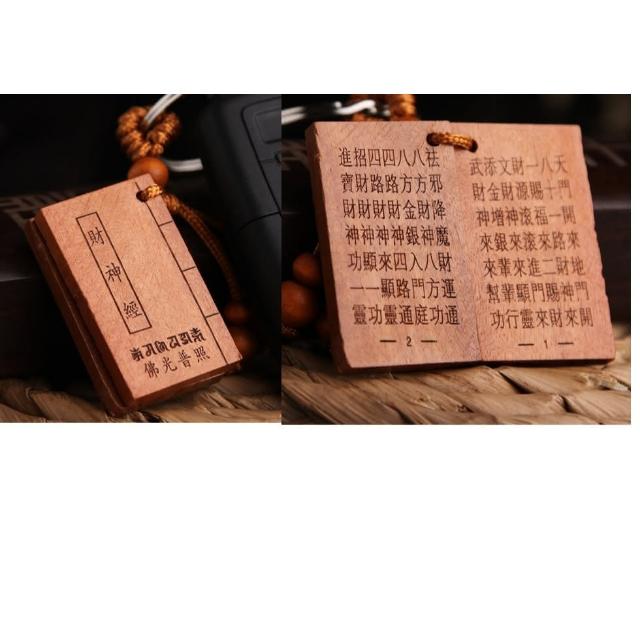 財神經
佛光普照
天門開來地門開
八十一路財神來
一賜福來二賜財
財源滾滾進門來
文財神來來顯靈
添金增銀輩輩行
武財神來來幫功
1
祛邪降魔財運通
八方財神八方功
八方金銀入門庭
四路財神四路通
四路財神來顯靈
招財財神顯一功
進寶財神功一靈
2